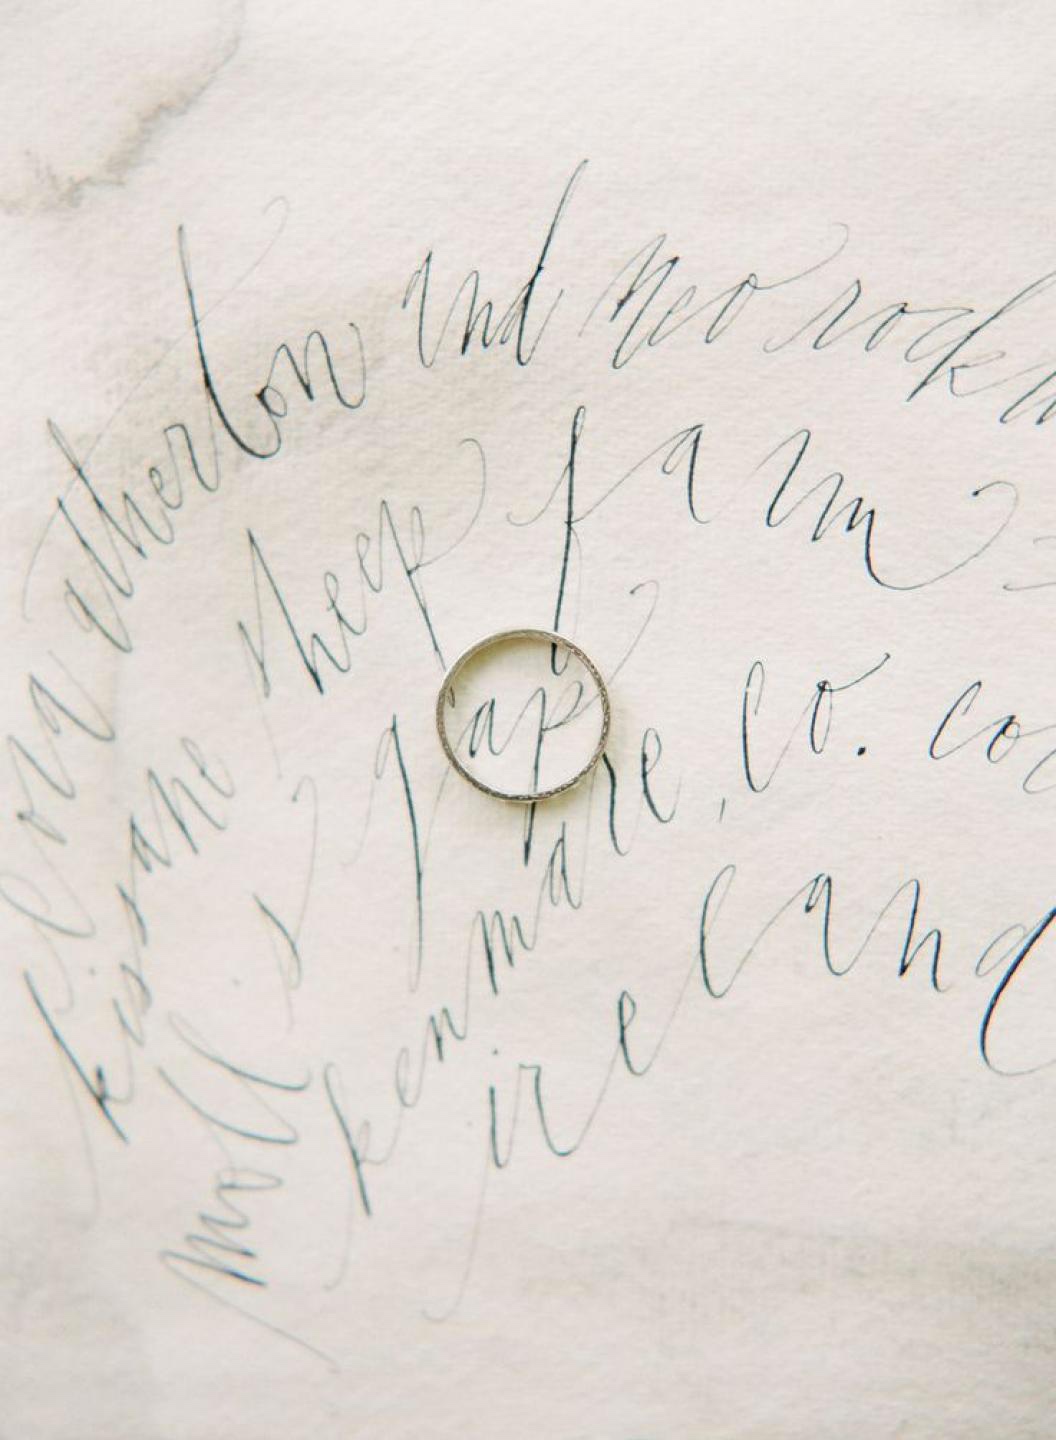 atherton and neo rock
kissane sheep farm
moll's gap
kenmare, co.
ireland